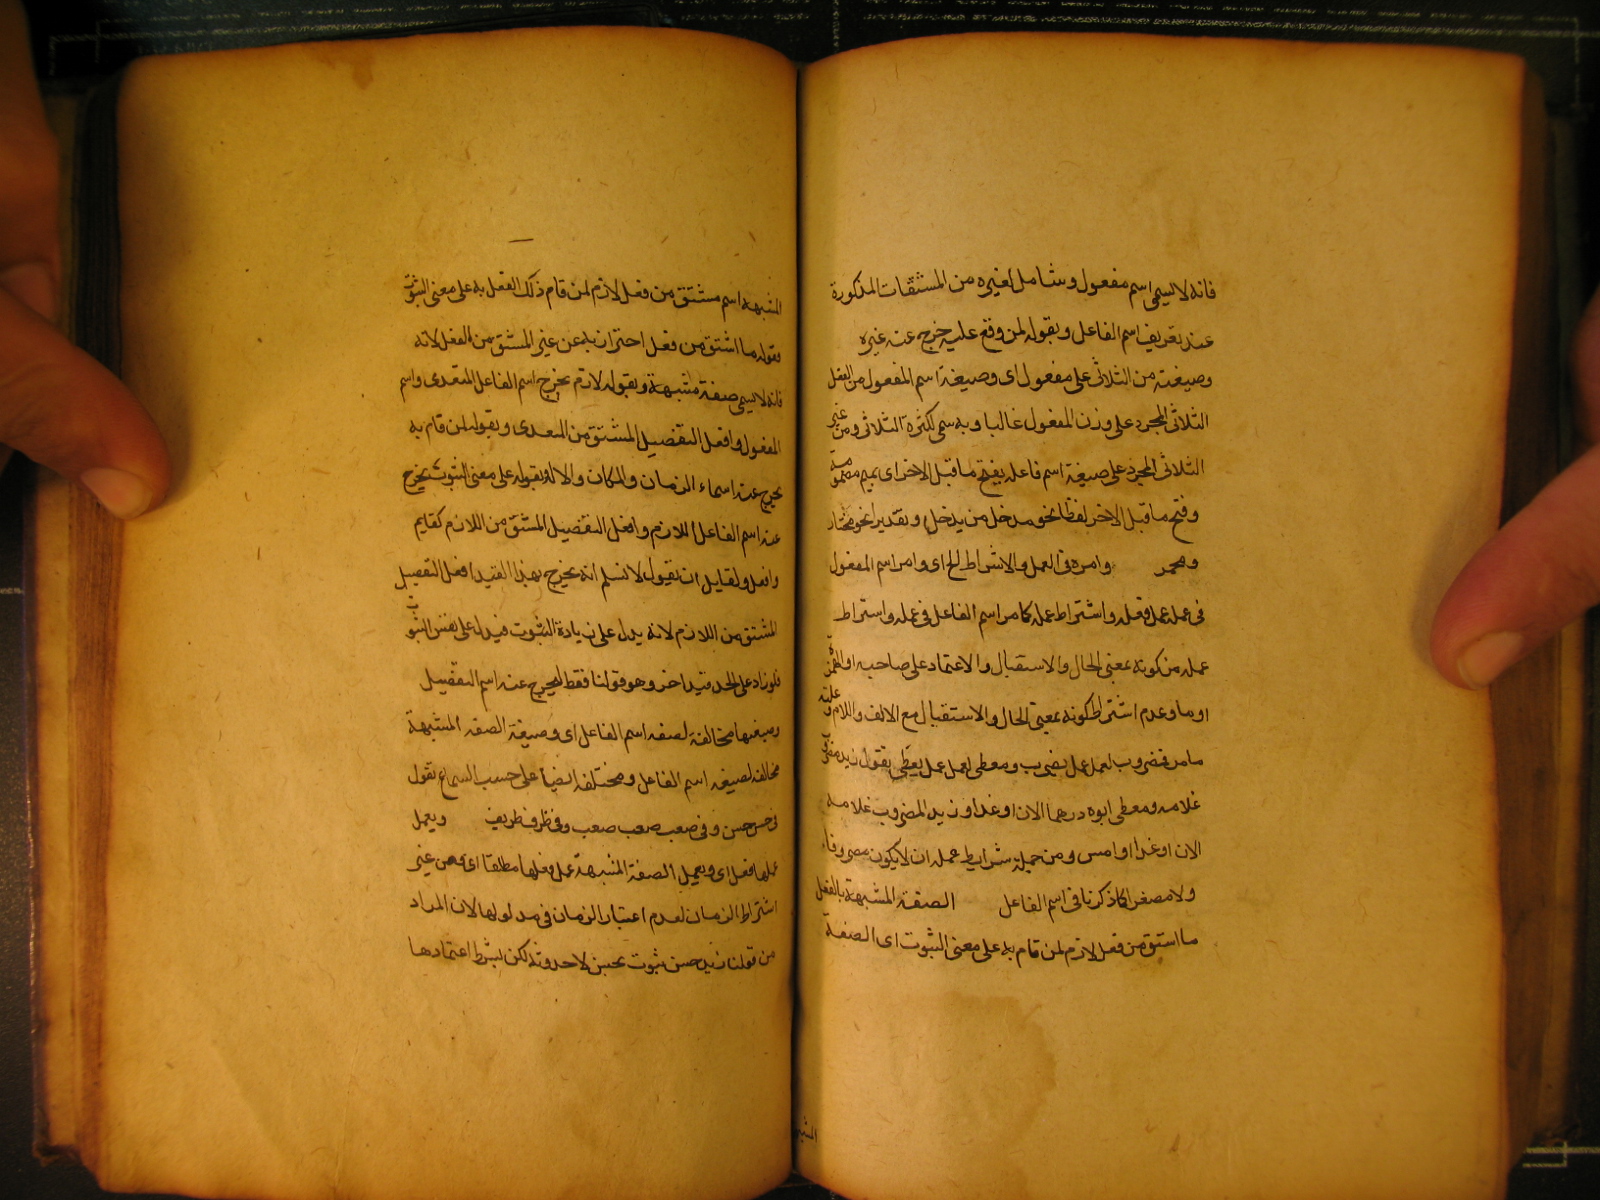 فانه لا يسمى اسم مفعول وشامل لغيره من المشتقات المذكورة
عند تعريف اسم الفاعل وبقوله لمن وقع عليه خرج عنه غيره
وصيغته من الثلاثى على مفعول اى وصيغة اسم المفعول من الفعل
الثلاثى المجرد على وزن المفعول غالبا وبه سمى لكثرة الثلاثى ومن غير
الثلاثى المجرد على صيغة اسم فاعله بفتح ما قبل الاخر اى بميم مضمومة
وفتح ما قبل الاخر لفظا نحو مدخل من يدخل او تقديرا نحو مختار
وامره فى العمل والاشتراط الخ اى وامر اسم المفعول
فى عمله عمل فعله واشتراط عمله كامر اسم الفاعل فى عمله واشتراط
عمله من كونه بمعنى الحال والاستقبال والاعتماد على صاحبه او الهمزة
او ما وعدم اشتراط كونه بمعنى الحال والاستقبال مع الالف واللام
ما مر فمضروب لعمل عمل يضرب ومعطى لعمل عمل يعطى تقول زيد مضروب
غلامه ومعطى ابوه درهما الان او غدا وزيد المضروب غلامه
الان او غدا او امس ومن جملة شرايط عمله ان لا يكون موصوفا
ولا مصغرا كما ذكرنا فى اسم الفاعل الصفة المشبهة بالفعل
ما اشتق من فعل لازم لمن قام به على معنى الثبوت اى الصفة
المشبهة
المشبهة اسم مشتق من فعل لازم لمن قام ذلك الفعل به على معنى الثبوت
فقوله ما اشتق من فعل احتراز به عن غير المشتق من الفعل لانه
فانه لا يسمى صفة مشبهة وبقوله لازم يخرج اسم الفاعل المتعدى واسم
المفعول وافعل التفضيل المشتق من المتعدى وبقوله لمن قام به
يخرج عنه اسماء الزمان والمكان والالة وبقوله على معنى الثبوت يخرج
عنه اسم الفاعل اللازم وافعل التفضيل المشتق من اللازم كقايم
وافعل ولقايل ان يقول لا نسلم انه يخرج بهذا القيد افعل التفضيل
المشتق من اللازم لانه يدل على زيادة الثبوت فيدل على نفس الثبوت
فلو زاد على الحد قيد اخر وهو قولنا فقط ليخرج عنه اسم التفضيل
وصيغتها مخالفة لصيغه اسم الفاعل اى وصيغة الصفة المشبهة
مخالفة لصيغه اسم الفاعل ومختلفة ايضا على حسب السماع تقول
فى حسن حسن وفى صعب صعب وفى ظرف ظريف ويعمل
عملها فعل اى ويعمل الصفة المشبهة عمل فعلها مطلقا اى من غير
اشتراط الزمان لعدم اعتبار الزمان فى مدلولها لان المراد
من قولنا زيد حسن ثبوت حسن لا حدوثه لكن يشترط اعتمادها